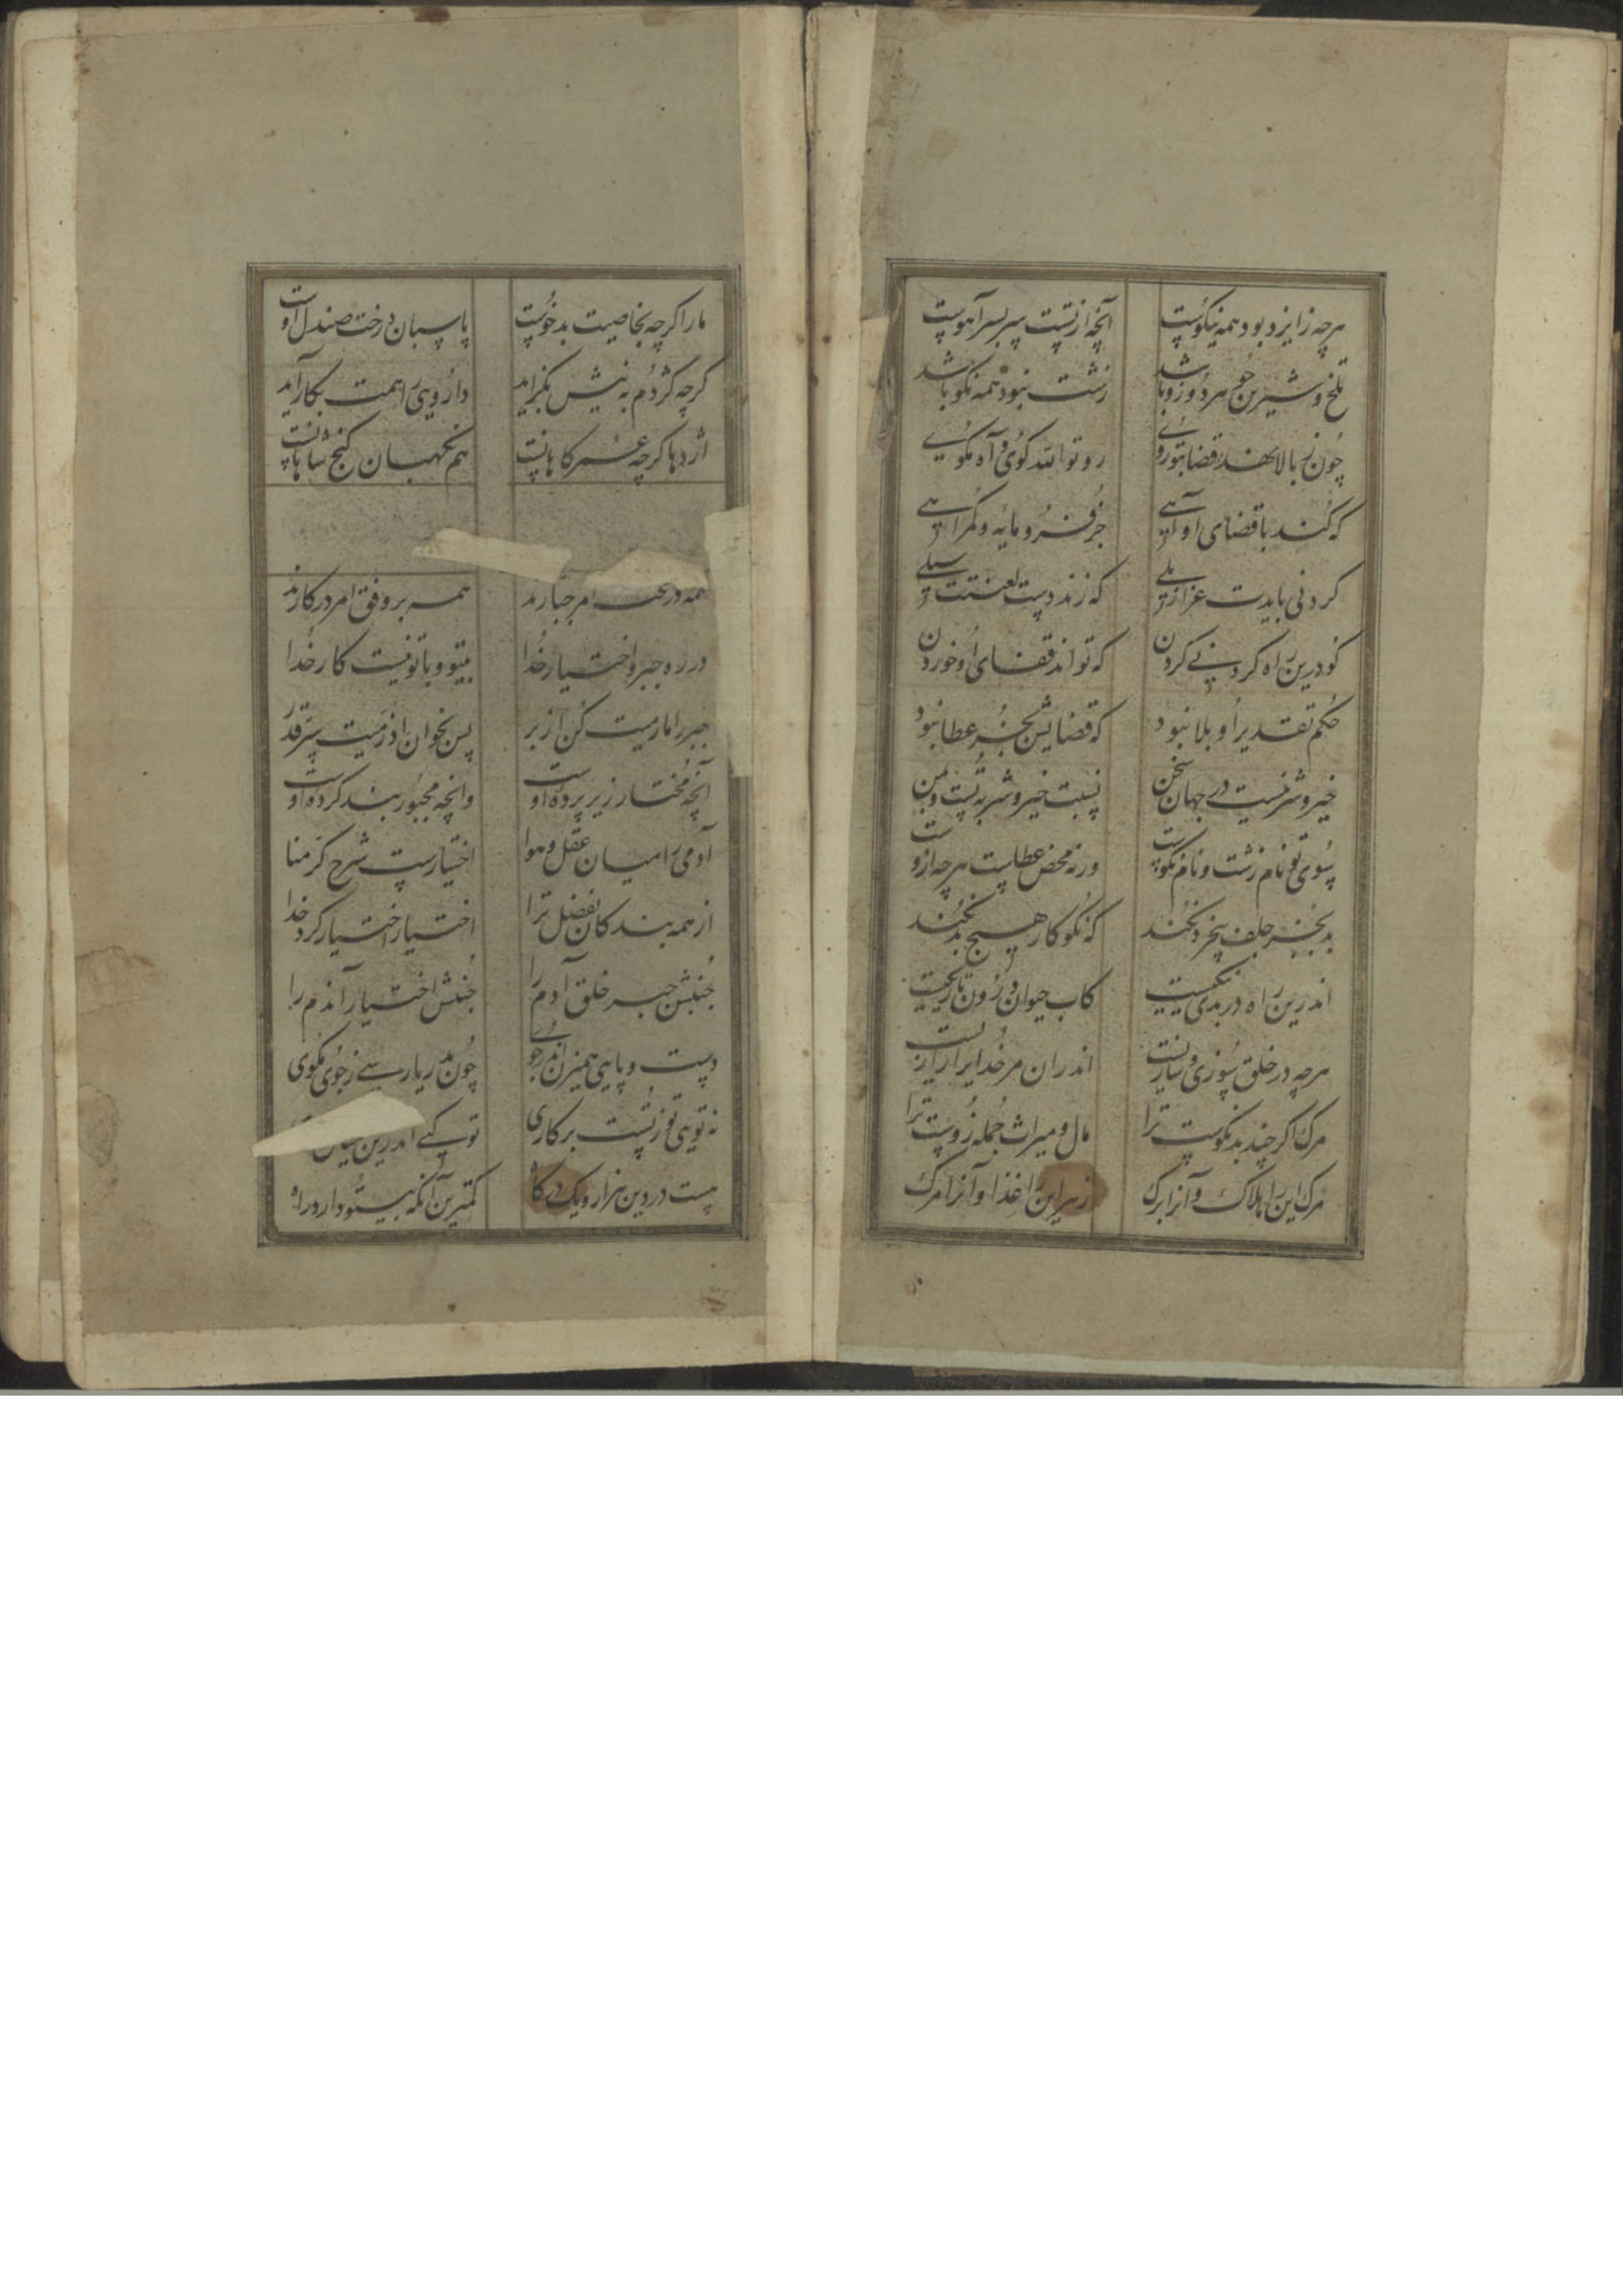 هرچه زایزد بود همه نیکوست آنچه از تست سر بسر آهوست
تلخ و شیرین چو هر دو زو باشد زشت نبود همه نکو باشد
چون ز بالا نهد قضا بتو روی رو تو الله کوی و آه مکوی
که کند با قضای او آهی جز فرومایه و کمراهی
کردنی بایدت عزازیلی که زند دست لعنتت سیلی
کو درین راه کردنی کردن که تواند قفای او خوردن
حکم تقدیر او بلا نبود که قضایش بجز عطا نبود
خیر و شر نیست در جهان سخن نسبت خیر و شر به تست و بمن
سوی تو نام زشت و نام نکوست ورنه محض عطاست هرچه ازوست
بد بجز جلف بیخرد نکند که نکوکار هیچ بد نکند
اندرین راه در بدی نیکیست کاب حیوان درون تاریکیست
هرچه در خلق سوزی و سازیست اندران مر خدایرا رازیست
مرک اکر چند بد نکوست ترا مال و میراث جمله زوست ترا
مرک این را هلاک و آنرا برک زهر این را غذا و آنرا مرک
مار اکرچه بخاصیت بدخوست پاسبان درخت صندل اوست
کرچه کژدم به نیش بکزاید داروی را همت بکار آید
اژدها کرچه عمر کاهانست هم نکهبان کنج شاهانست
همه در امر جبارند همه بر وفق امر در کارند
در ره جبر و اختیار خدا بیتو و با تو نیست کار خدا
جبر را مارمیت کن از بر پس بخوان اذ رمیت سر قدر
آنچه مختار زیر پرده اوست وانچه مجبور بند کرده اوست
آدمی را میان عقل و هوا اختیارست شرح کرمنا
از همه بندکان بفضل ترا اختیار اختیار کرد خدا
جنبش جبر خلق آدم را جنبش اختیار آندم را
دست و پایی همیزن اندر جوی چون بدریا رسی ز جوی مکوی
نه توی تو ز تست بر کاری تو کیی اندرین
هست در دین هزار و یک درکاه کمترین آنکه بیتو دارد راه